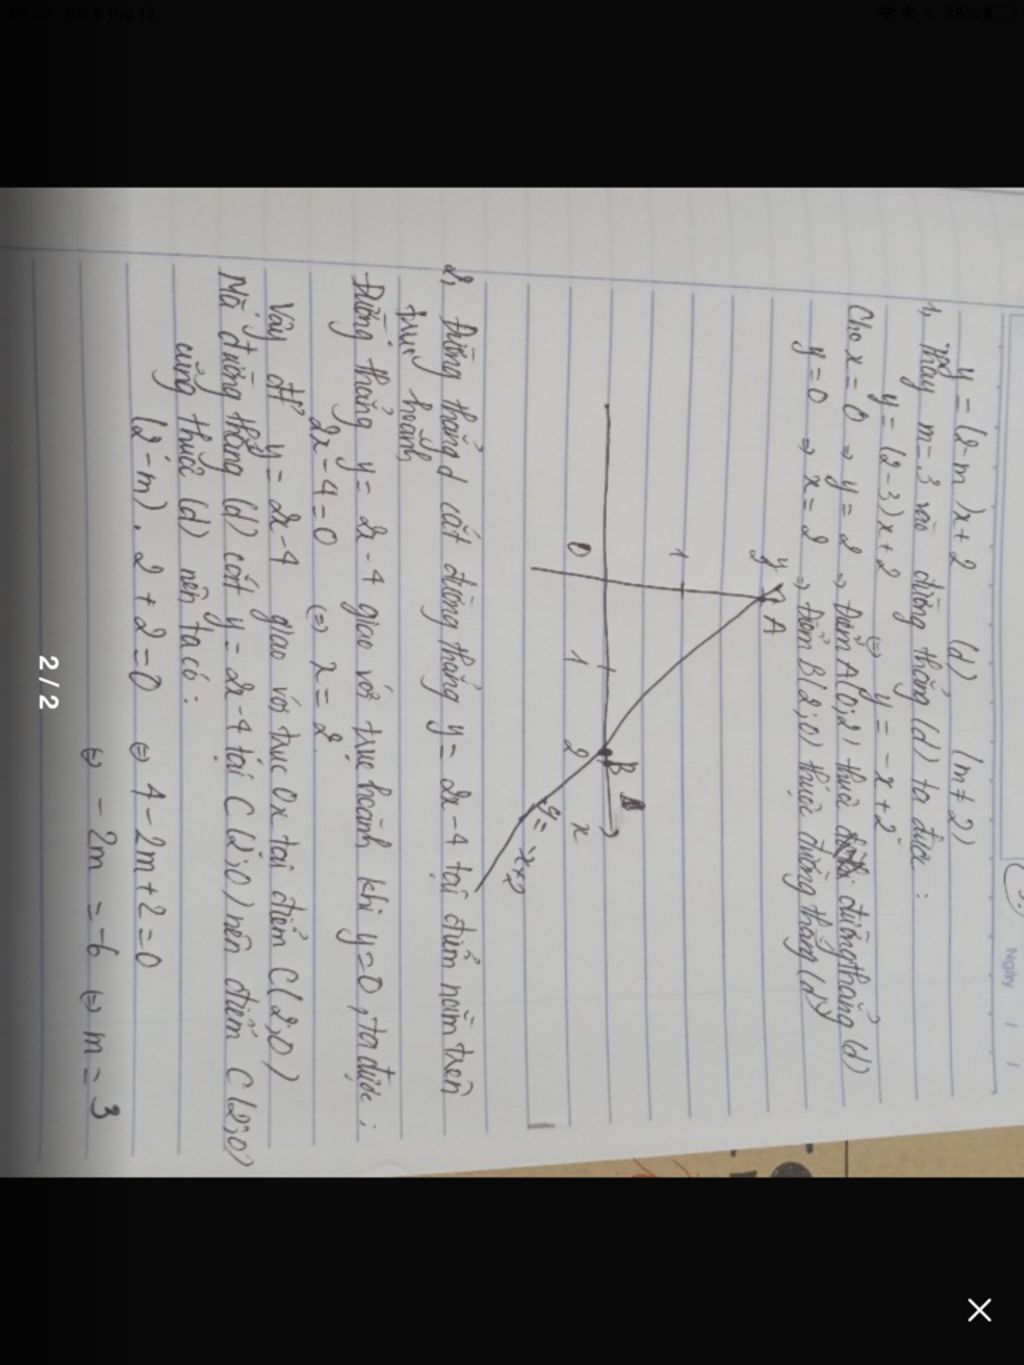 18:57 CN 6 thg 12
28%
Ngày / /
y = (2-m)x+2 (d) (m ≠ 2)
1, Thay m=3 vào đường thẳng (d) ta được :
y = (2-3)x+2 (=) y = -x+2
Cho x=0 => y=2 => Điểm A(0;2) thuộc đường thẳng (d)
y=0 => x=2 => Điểm B(2;0) thuộc đường thẳng (d)
y
A
1
0
1
2
B
x
y=-x+2
2, Đường thẳng d cắt đường thẳng y = 2x-4 tại điểm nằm trên
trục hoành
Đường thẳng y = 2x-4 giao với trục hoành khi y=0, ta được :
2x-4=0 (=) x=2
Vậy đt y = 2x-4 giao với trục Ox tại điểm C(2;0)
Mà đường thẳng (d) cắt y = 2x-4 tại C(2;0) nên điểm C(2;0)
cũng thuộc (d) nên ta có :
(2-m).2+2=0 (=) 4-2m+2=0
(=) -2m = -6 (=) m = 3
2 / 2